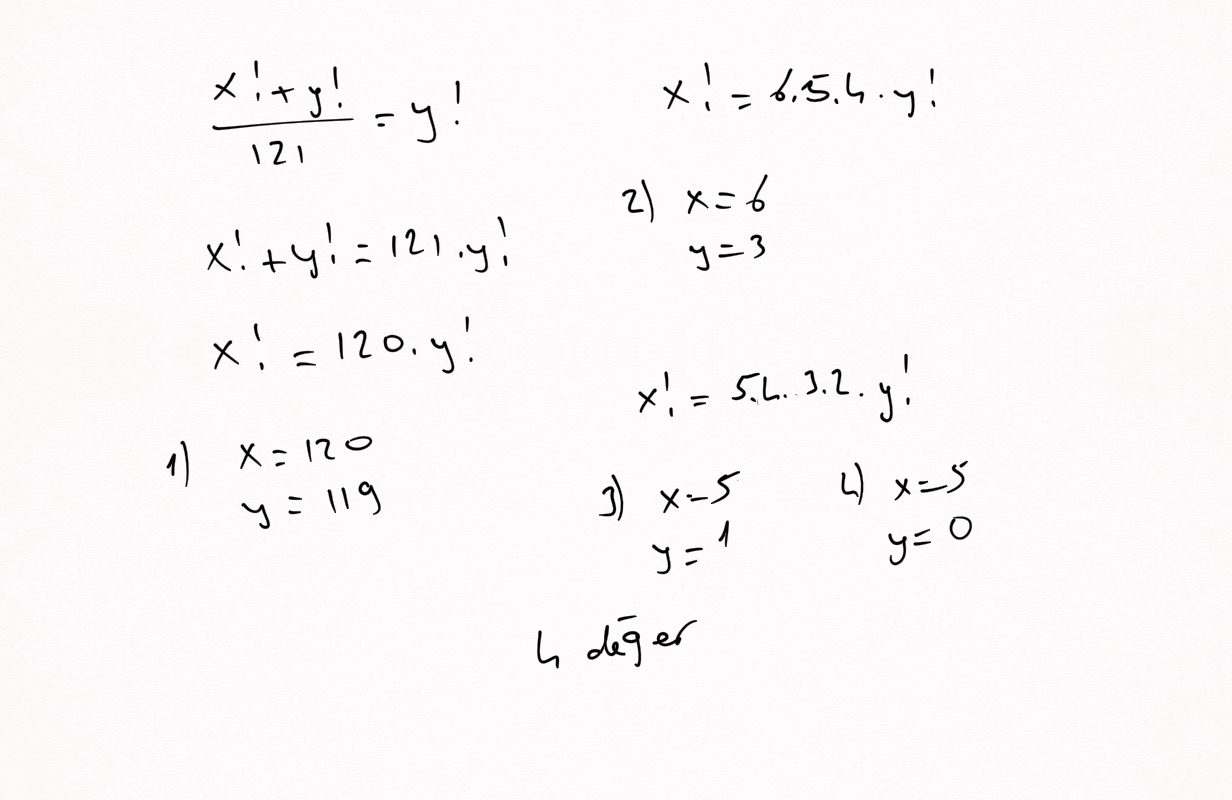 x! + y! / 121 = y!
x! + y! = 121 . y!
x! = 120 . y!
1) x = 120
y = 119
x! = 6.5.4 . y!
2) x = 6
y = 3
x! = 5.4.3.2 . y!
3) x = 5
y = 1
4) x = 5
y = 0
4 değer